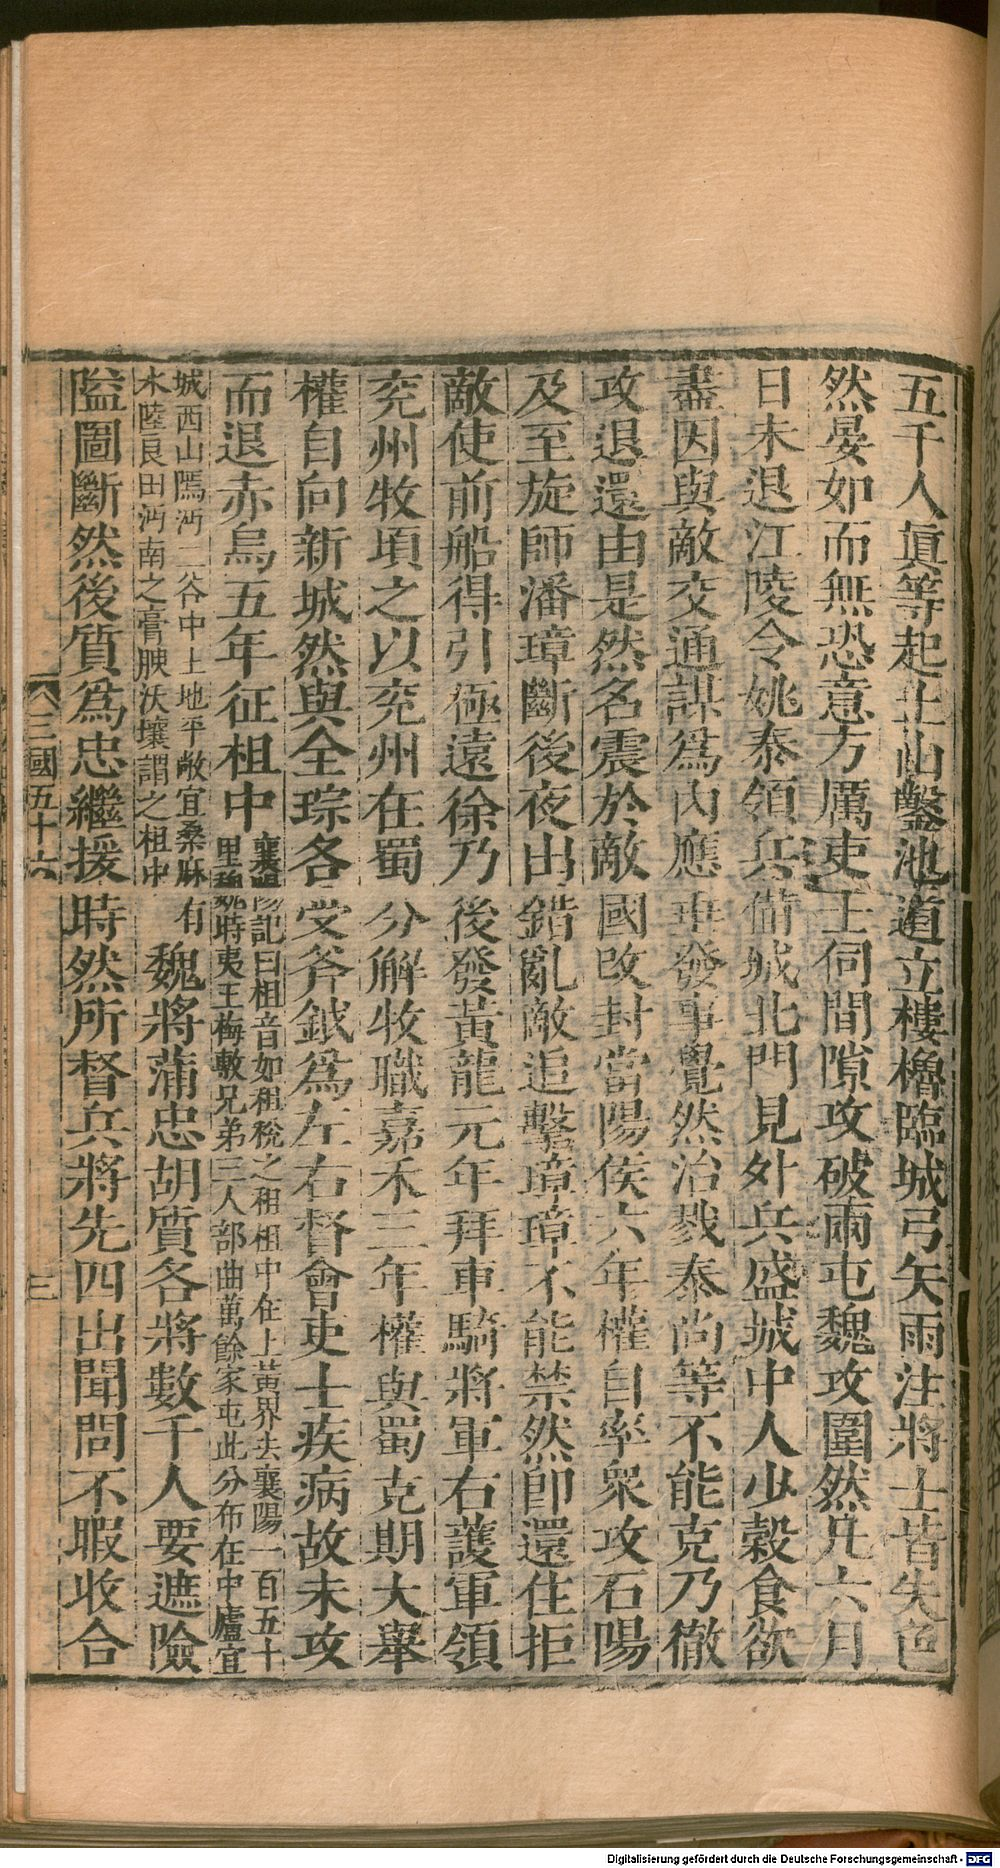 五千人眞等起土山鑿地道立樓櫓臨城弓矢雨注將士皆失色
然晏如而無恐意方厲吏士伺間隙攻破兩屯魏攻圍然凡六月
日未退江陵令姚泰領兵備城北門見外兵盛城中人少穀食欲
盡因與敵交通謀爲內應垂發事覺然治戮泰尚等不能克乃徹
攻退還由是然名震於敵國改封當陽侯六年權自率衆攻石陽
及至旋師潘璋斷後夜出錯亂敵追擊璋璋不能禁然卽還住拒
敵使前船得引極遠徐乃後發黃龍元年拜車騎將軍右護軍領
兖州牧頃之以兖州在蜀分解牧職嘉禾三年權與蜀克期大舉
權自向新城然與全琮各受斧鉞爲左右督會吏士疾病故未攻
而退赤烏五年征柤中襄陽記曰柤音如租稅之租柤中在上黃界去襄陽一百五十
里魏時夷王梅敷兄弟三人部曲萬餘家屯此分布在中廬宜
城西山鄢沔二谷中土地平敞宜桑麻有
水陸良田沔南之膏腴沃壤謂之柤中魏將蒲忠胡質各將數千人要遮險
隘圖斷然後質爲忠繼援時然所督兵將先四出聞問不暇收合
三國五十六
三
Digitalisierung gefördert durch die Deutsche Forschungsgemeinschaft - DFG